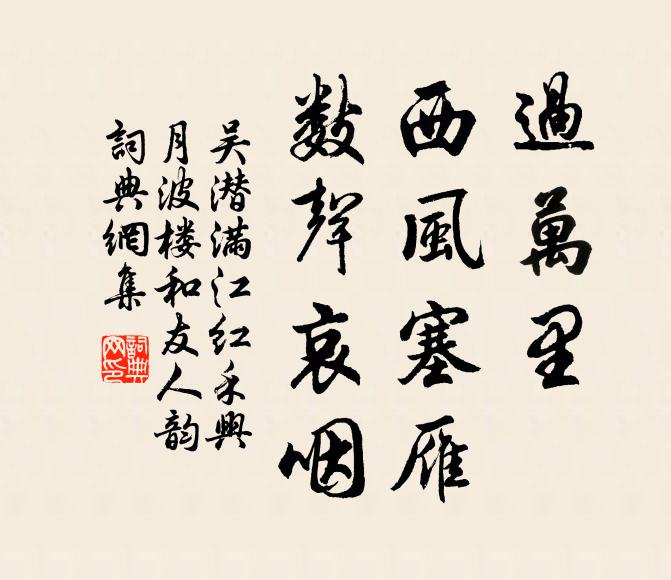 過萬里
西風塞雁
數聲哀咽
吳潜滿江红禾興
月波楼和友人韵
詞典網集
詞典
网印